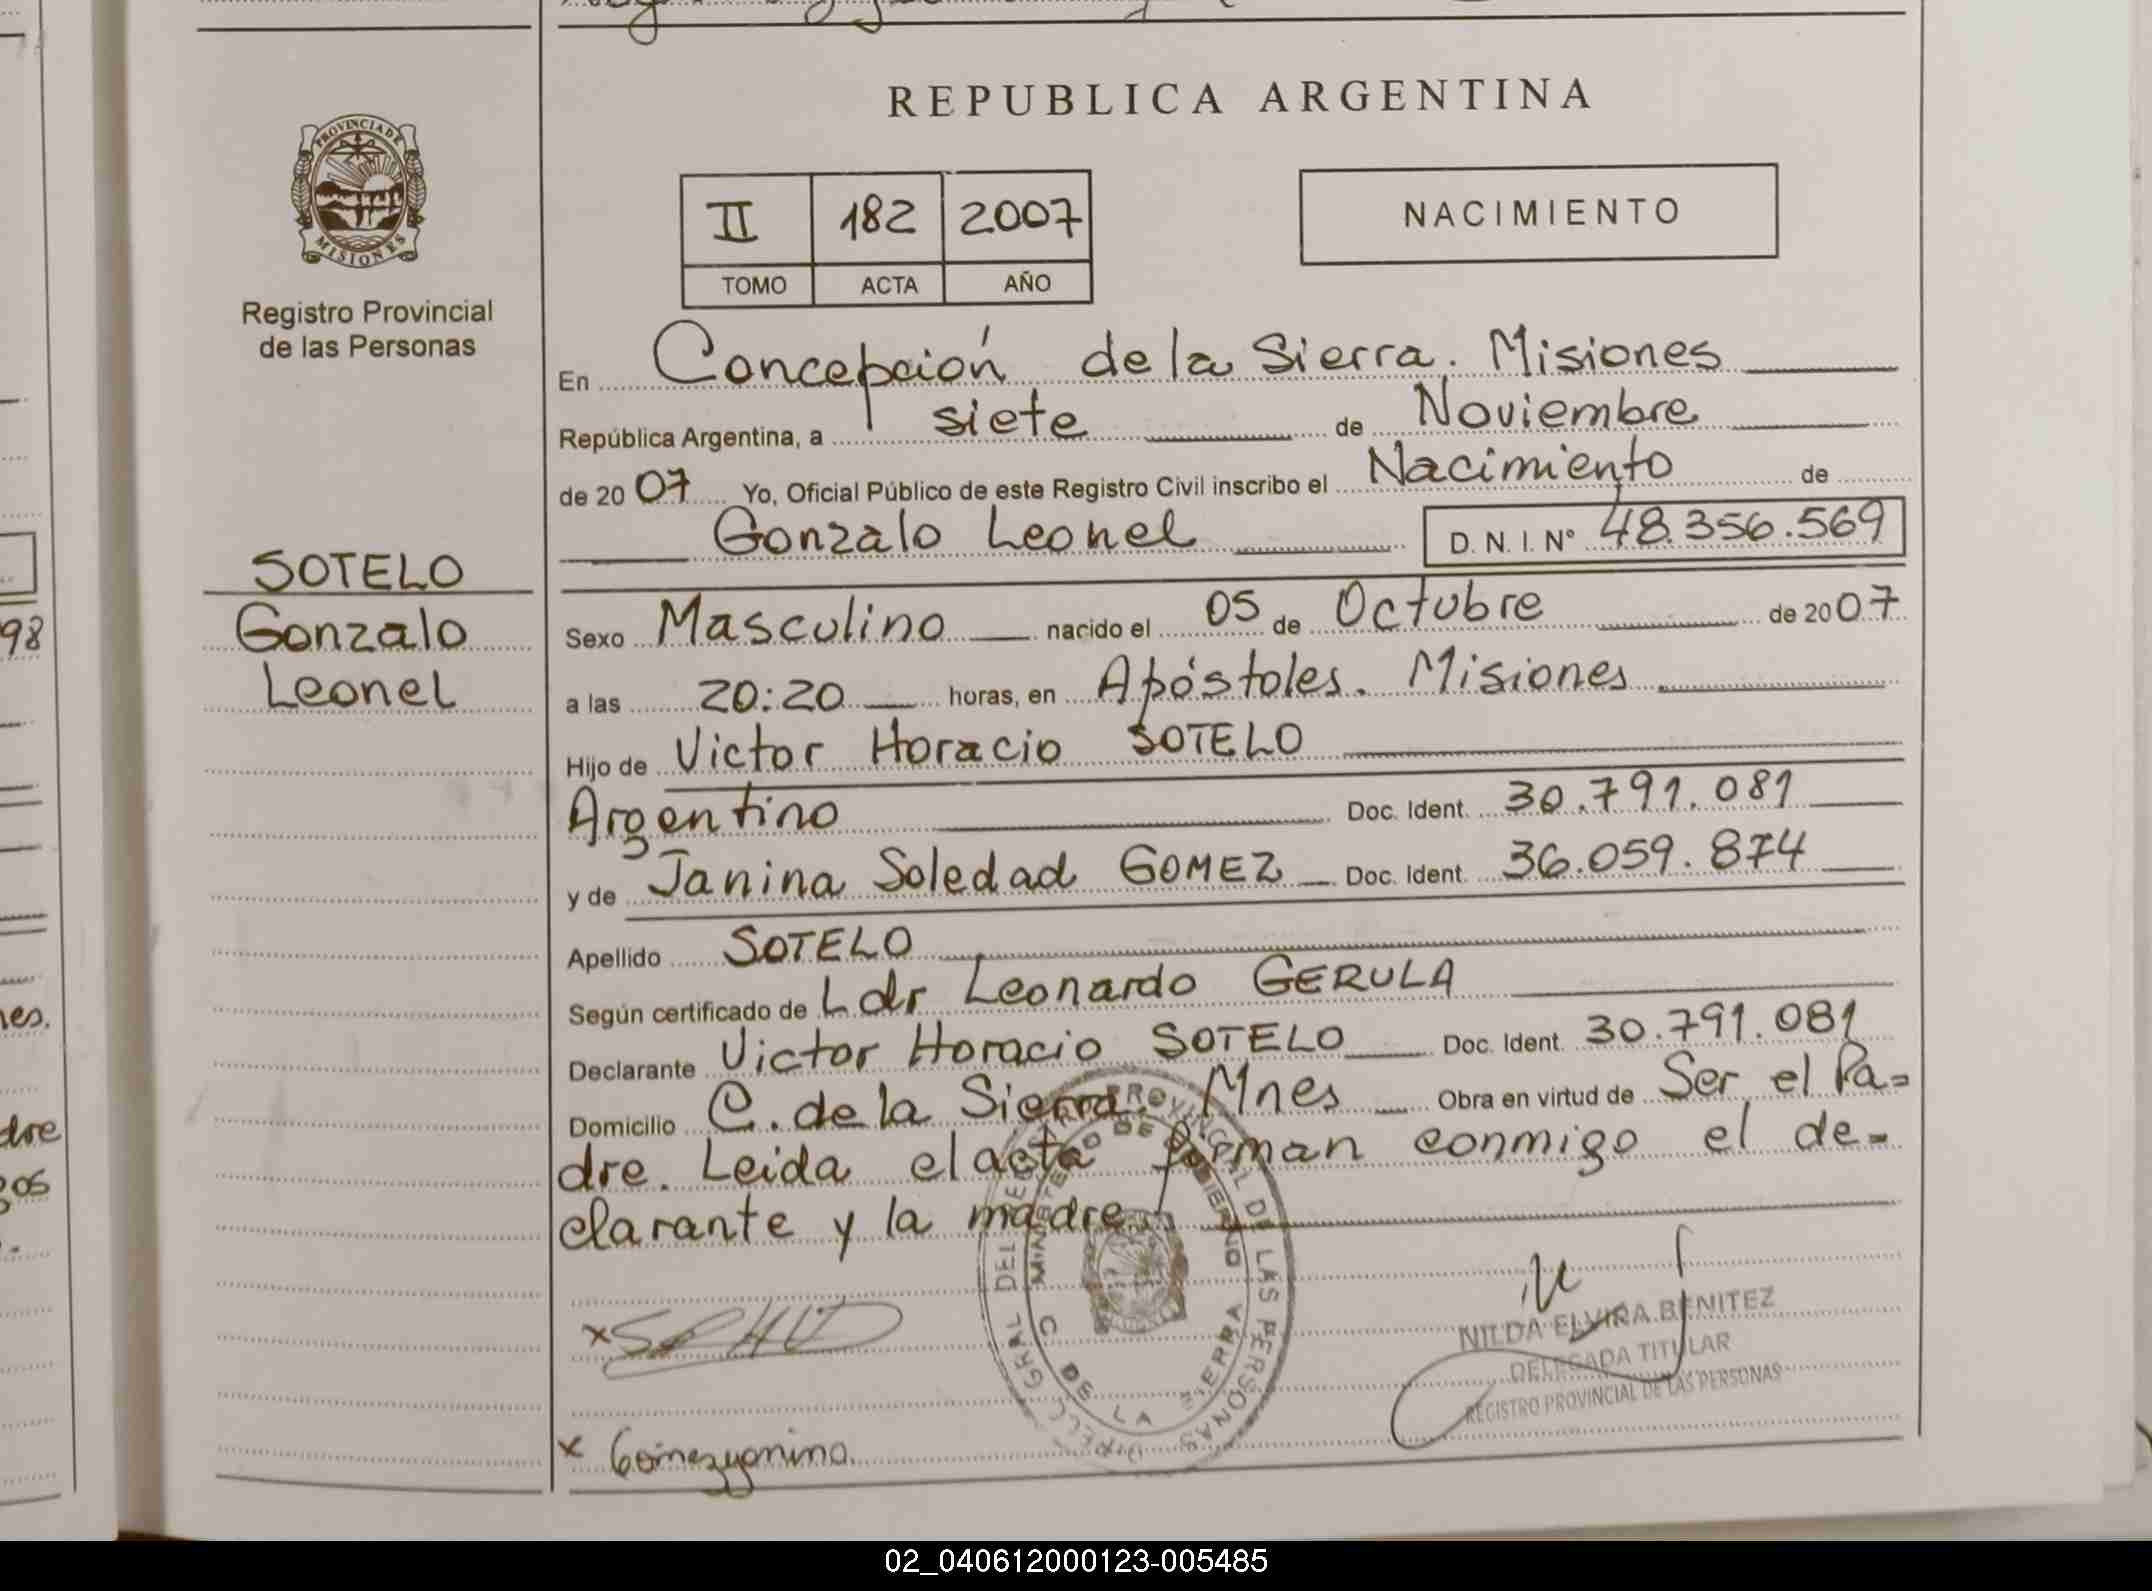 REPUBLICA ARGENTINA
PROVINCIA DE
MISIONES
Registro Provincial
de las Personas
II 182 2007
TOMO ACTA AÑO
NACIMIENTO
En Concepción de la Sierra. Misiones
República Argentina, a siete de Noviembre
de 2007 Yo, Oficial Público de este Registro Civil inscribo el Nacimiento de
Gonzalo Leonel D. N. I. N° 48.356.569
SOTELO
Gonzalo
Leonel
Sexo Masculino nacido el 05 de Octubre de 2007
a las 20:20 horas, en Apóstoles. Misiones
Hijo de Victor Horacio SOTELO
Argentino Doc. Ident. 30.791.081
y de Janina Soledad GOMEZ Doc. Ident. 36.059.874
Apellido SOTELO
Según certificado de Ldr Leonardo GERULA
Declarante Victor Horacio SOTELO Doc. Ident. 30.791.081
Domicilio C. de la Sierra. Mnes Obra en virtud de Ser el Pa=
dre. Leida el acta firman conmigo el de=
clarante y la madre.
NILDA ELVIRA BENITEZ
DELEGADA TITULAR
REGISTRO PROVINCIAL DE LAS PERSONAS
x
x Gomezyanina
DIRECC. GRAL DEL REGISTRO PROVINCIAL DE LAS PERSONAS
MINISTERIO DE GOBIERNO
C DE LA SIERRA
98
nes.
dre
gos
02_040612000123-005485